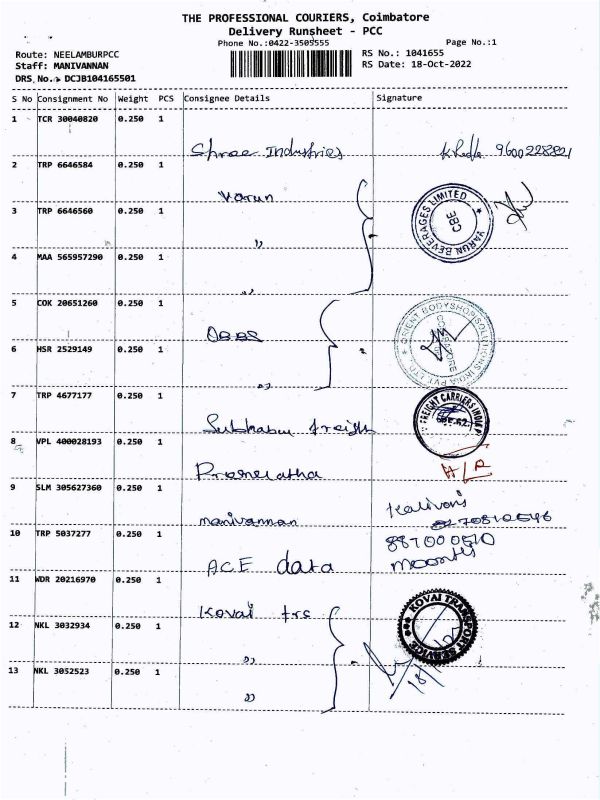 THE PROFESSIONAL COURIERS, Coimbatore
Delivery Runsheet - PCC
Phone No.:0422-3505555 Page No.:1
Route: NEELAMBURPCC RS No.: 1041655
Staff: MANIVANNAN RS Date: 18-Oct-2022
DRS No.: DCJB104165501
S No Consignment No Weight PCS Consignee Details Signature
1 TCR 30040820 0.250 1
Shree Industries 9600228821
2 TRP 6646584 0.250 1
Varun
VARUN BEVERAGES LIMITED
CBE
3 TRP 6646560 0.250 1
"
4 MAA 565957290 0.250 1
"
5 COK 20651260 0.250 1
OBBS
ORIENT BODYSHOP SOLUTIONS INDIA PVT. LTD.
COIMBATORE
6 HSR 2529149 0.250 1
"
7 TRP 4677177 0.250 1
FREIGHT CARRIERS INDIA
8 VPL 400028193 0.250 1
9 SLM 305627360 0.250 1
manivannan
10 TRP 5037277 0.250 1
8870000510
ACE data
11 WDR 20216970 0.250 1
Kovai trs
KOVAI TRANSPORT SERVICE
12 NKL 3032934 0.250 1
"
13 NKL 3052523 0.250 1
"